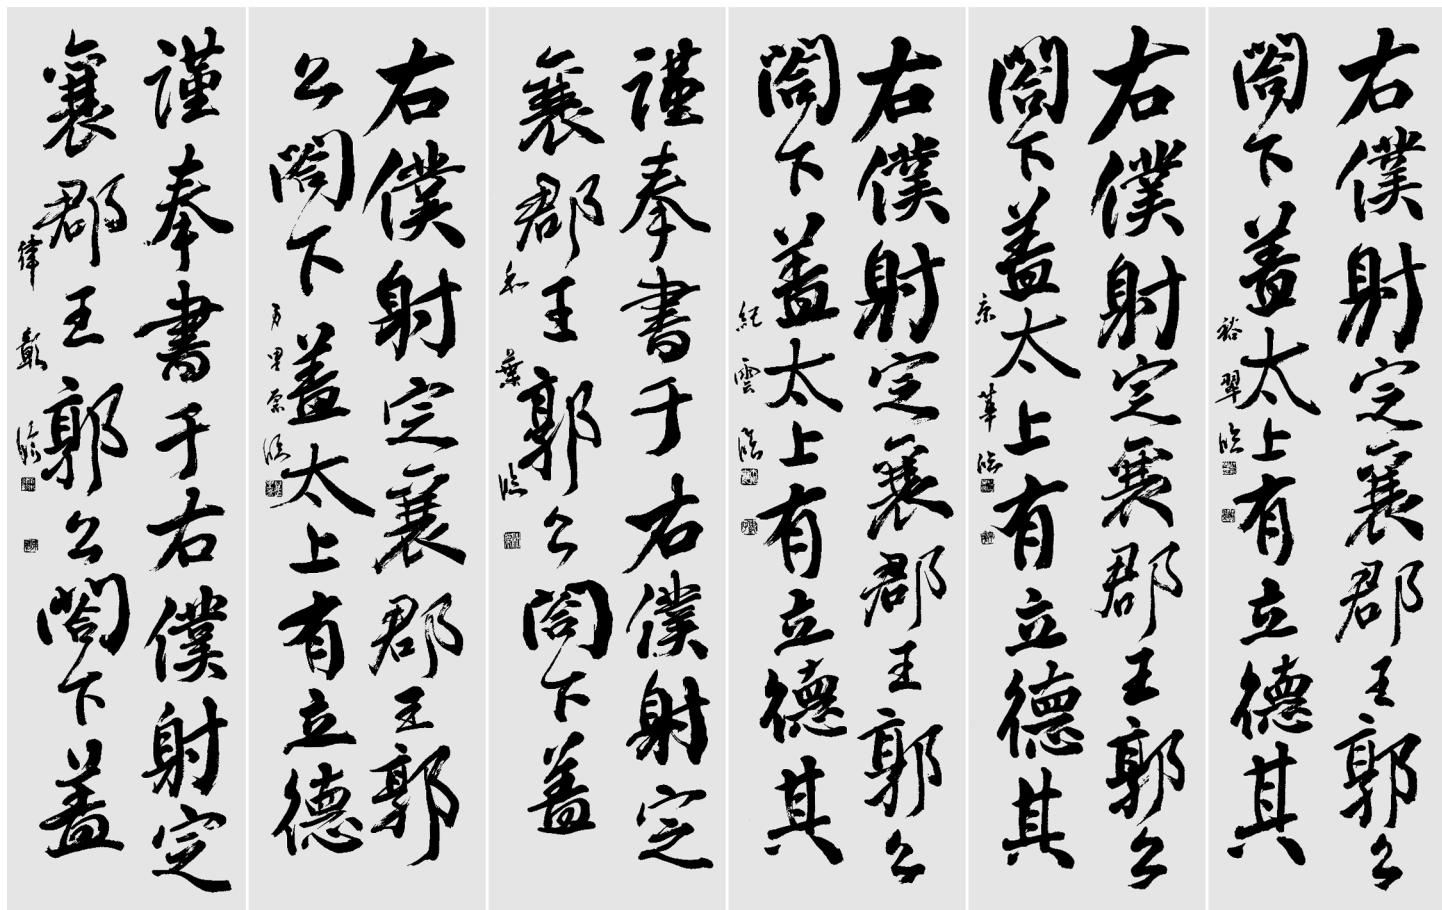 右僕射定襄郡王郭公
閤下蓋太上有立德其
裕翠臨
右僕射定襄郡王郭公
閤下蓋太上有立德其
京華臨
右僕射定襄郡王郭公
閤下蓋太上有立德其
紀雲臨
謹奉書于右僕射定
襄郡王郭公閤下蓋
臨
右僕射定襄郡王郭
公閤下蓋太上有立德
臨
謹奉書于右僕射定
襄郡王郭公閤下蓋
偉彰臨